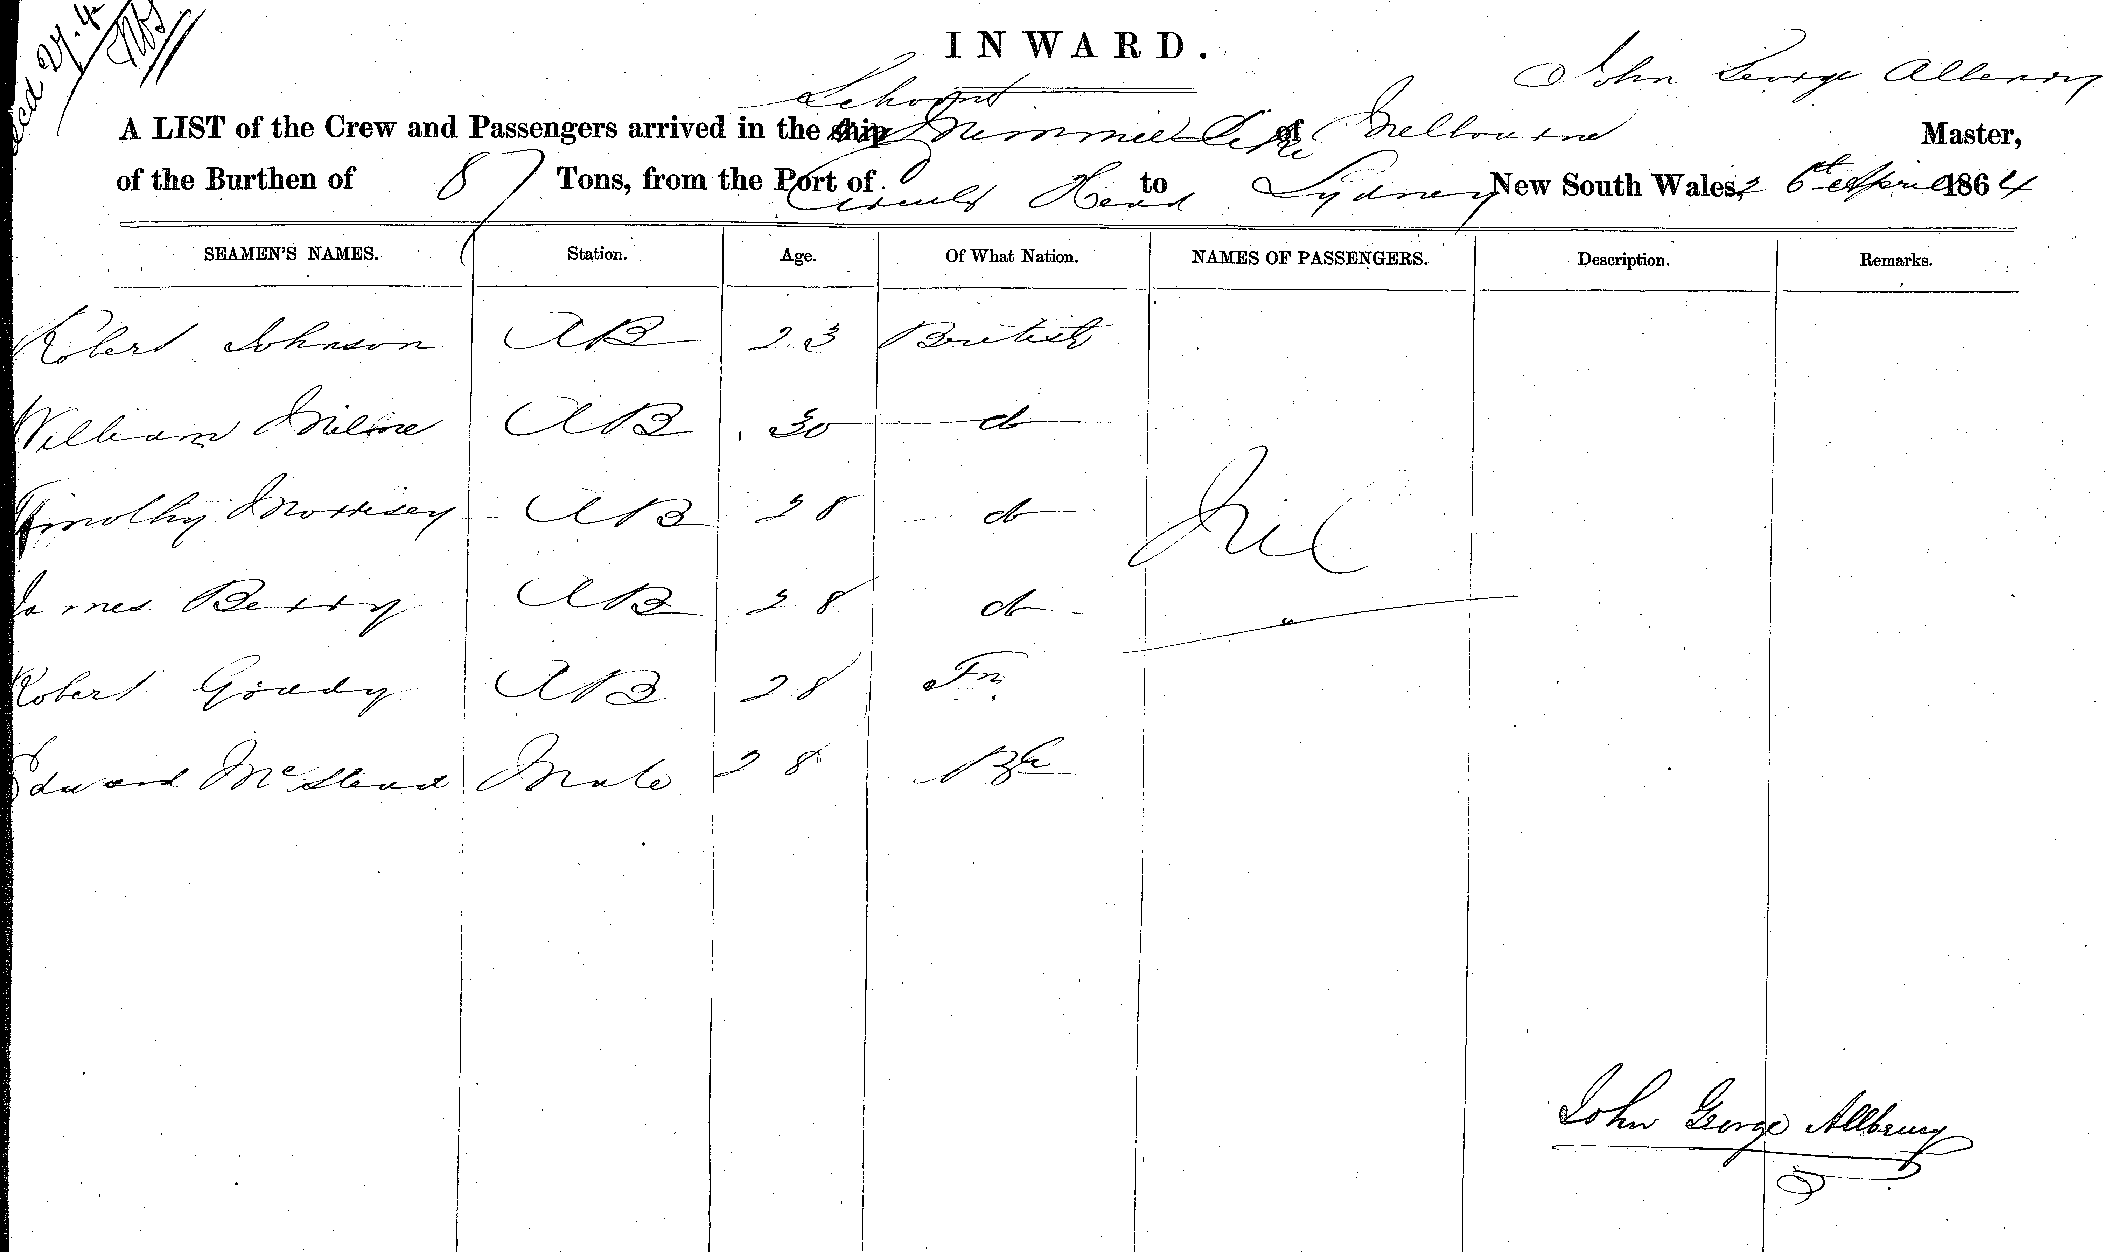 27.4
INWARD.
John George Allbeury
Schooner
A LIST of the Crew and Passengers arrived in the ship of Melbourne Master,
of the Burthen of 87 Tons, from the Port of Circular Head to Sydney New South Wales, 26th April 1864
SEAMEN'S NAMES. Station. Age. Of What Nation. NAMES OF PASSENGERS. Description. Remarks.
Robert Johnson AB 23 British
William Milne AB 30 do
Timothy Morrisey AB 28 do
Nil
James Berry AB 28 do
Robert Grady AB 28
Edward Mate 28
John George Allbeury